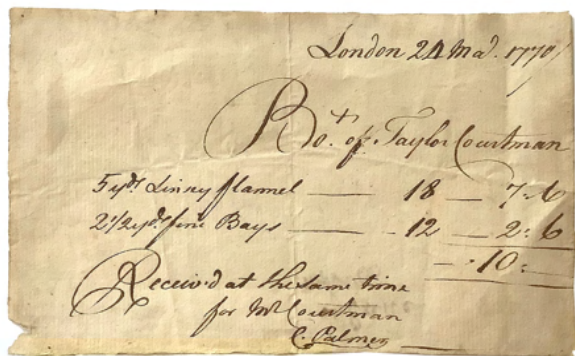 London 24 Mar. 1770
Bo.t of Taylor Courtman
5 yds Linsey flannel — 18 — 7:6
2 1/2 yds fine Bays — 12 — 2:6
— 10:
Receiv'd at the same time
for Mr Courtman
C. Palmer